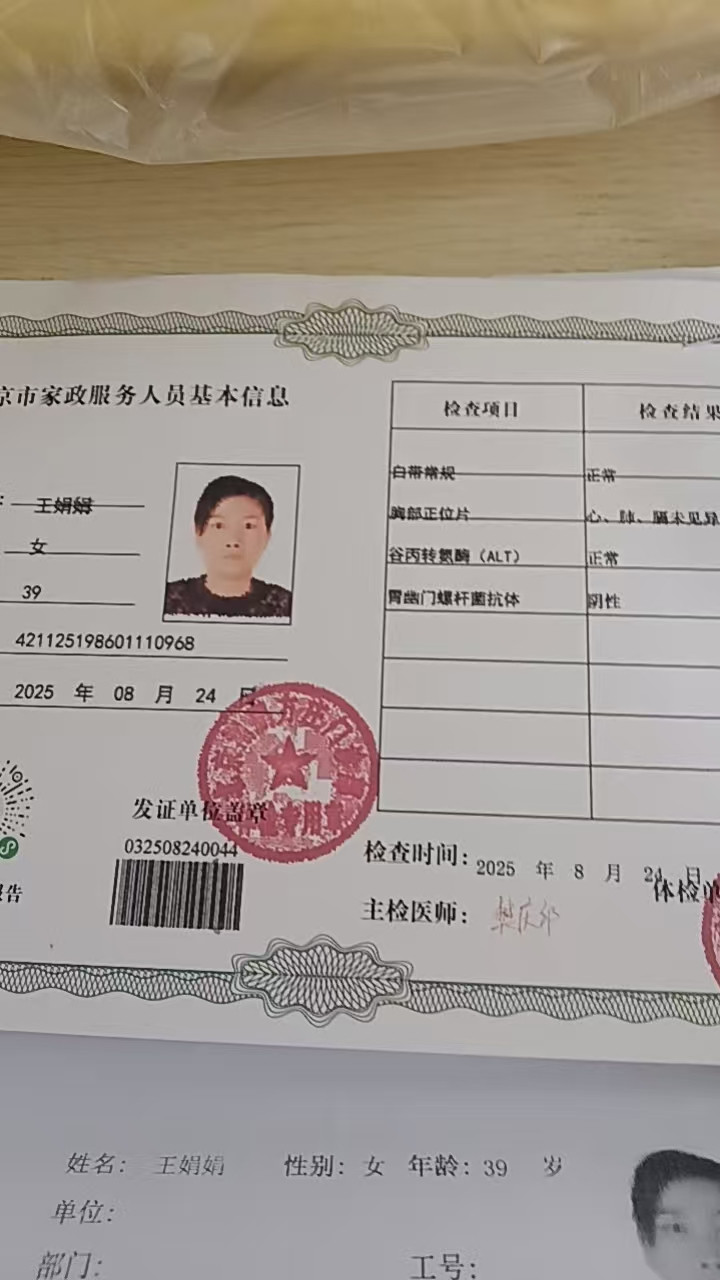 京市家政服务人员基本信息
王娟娟
女
39
421125198601110968
2025 年 08 月 24 日
发证单位盖章
032508240044
报告
检查项目 检查结果
白带常规 正常
胸部正位片 心、肺、膈未见异
谷丙转氨酶（ALT） 正常
胃幽门螺杆菌抗体 阴性
检查时间: 2025 年 8 月 24 日
体检单
主检医师:
姓名: 王娟娟 性别: 女 年龄: 39 岁
单位:
部门: 工号: